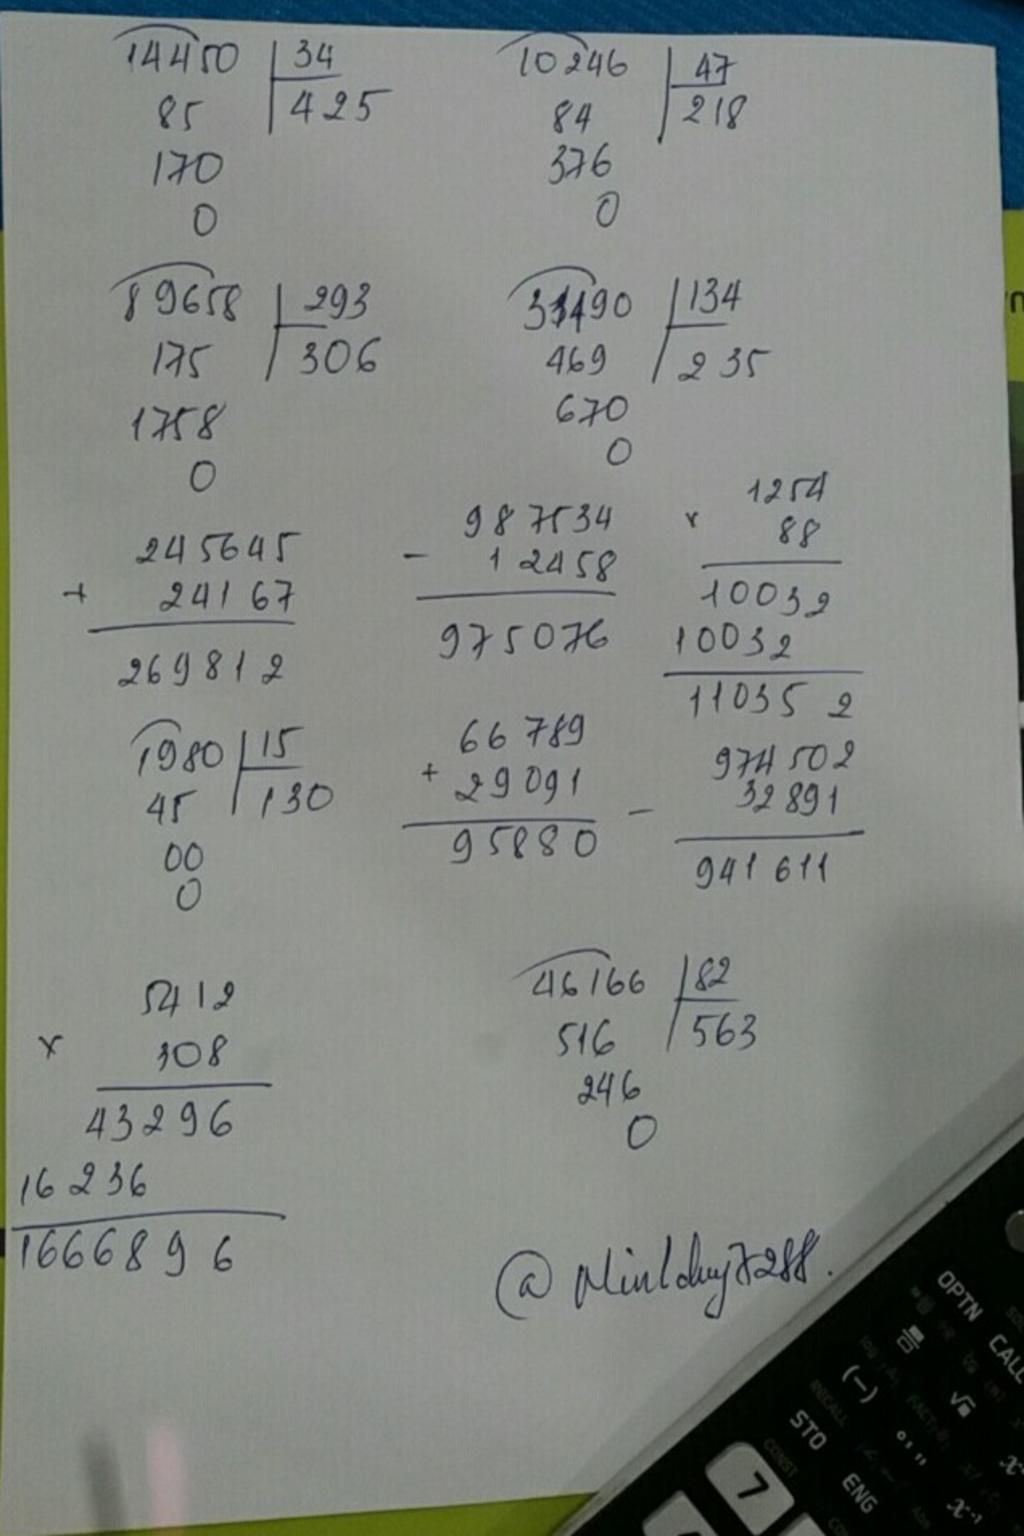 14450 34
85 425
170
0
10246 47
84 218
376
0
89658 293
175 306
1758
0
31490 134
469 235
670
0
245645
+ 24167
269812
987534
- 12458
975076
1254
x 88
10032
10032
110352
1980 15
45 130
00
0
66789
+ 29091
95880
974502
- 32891
941611
5412
x 308
43296
16236
1666896
46166 82
516 563
246
0
OPTN
CALC
(−)
STO
ENG
7
RECALL
CONST
FACT